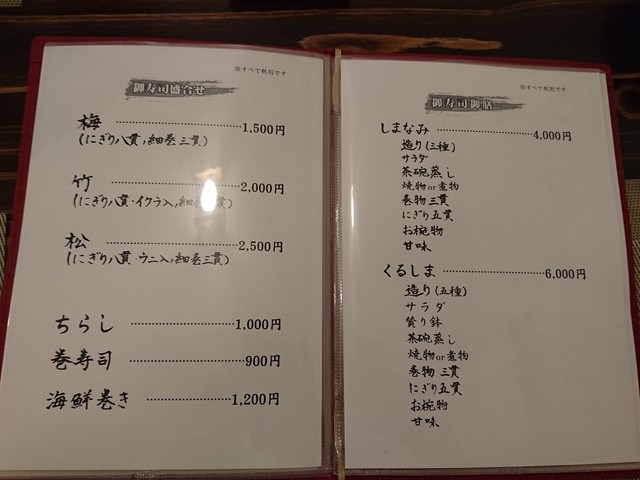 ※すべて税別です
御寿司盛合せ
梅 1,500円
(にぎり八貫,細巻三貫)
竹 2,000円
(にぎり八貫・イクラ入,細巻三貫)
松 2,500円
(にぎり八貫・ウニ入,細巻三貫)
ちらし 1,000円
巻寿司 900円
海鮮巻き 1,200円
※すべて税別です
御寿司御膳
しまなみ 4,000円
造り(三種)
サラダ
茶碗蒸し
焼物or煮物
巻物三貫
にぎり五貫
お椀物
甘味
くるしま 6,000円
造り(五種)
サラダ
貝り鉢
茶碗蒸し
焼物or煮物
巻物三貫
にぎり五貫
お椀物
甘味